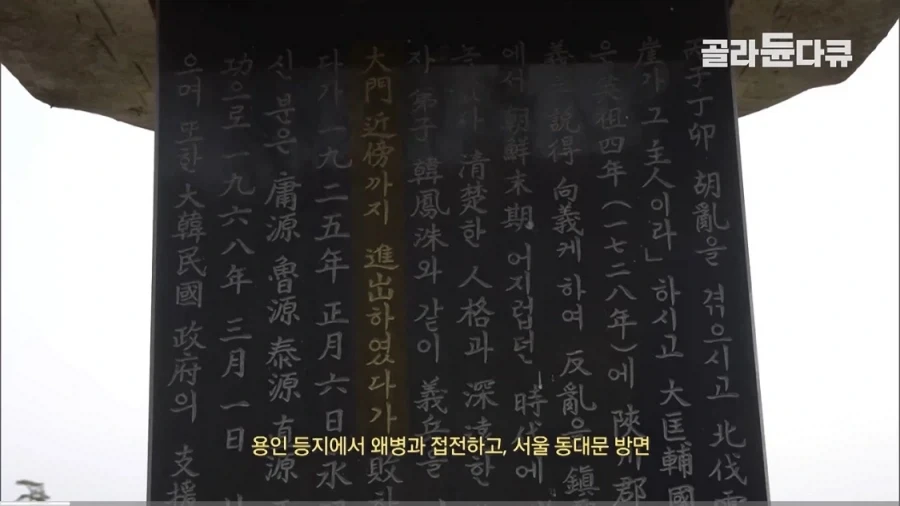 골라둔다큐
丙子丁卯 胡亂을 겪으시고 北伐
崖가 그 主人이라」 하시고 大匡輔國
은 英祖四年(一七二八年)에 陜川郡
說得 向義케 하여 反亂을 鎭
에서 朝鮮末期 어지럽던 時代에
淸楚한 人格과 深遠한
자 弟子 韓鳳洙와 같이 義兵을
大門近傍까지 進出하였다가 敗하
다가 一九二五年 正月六日 永
신 분은 庸源 魯源 泰源 直源
功으로 一九六八年 三月一日
으며 또한 大韓民國 政府의 支援
용인 등지에서 왜병과 접전하고, 서울 동대문 방면